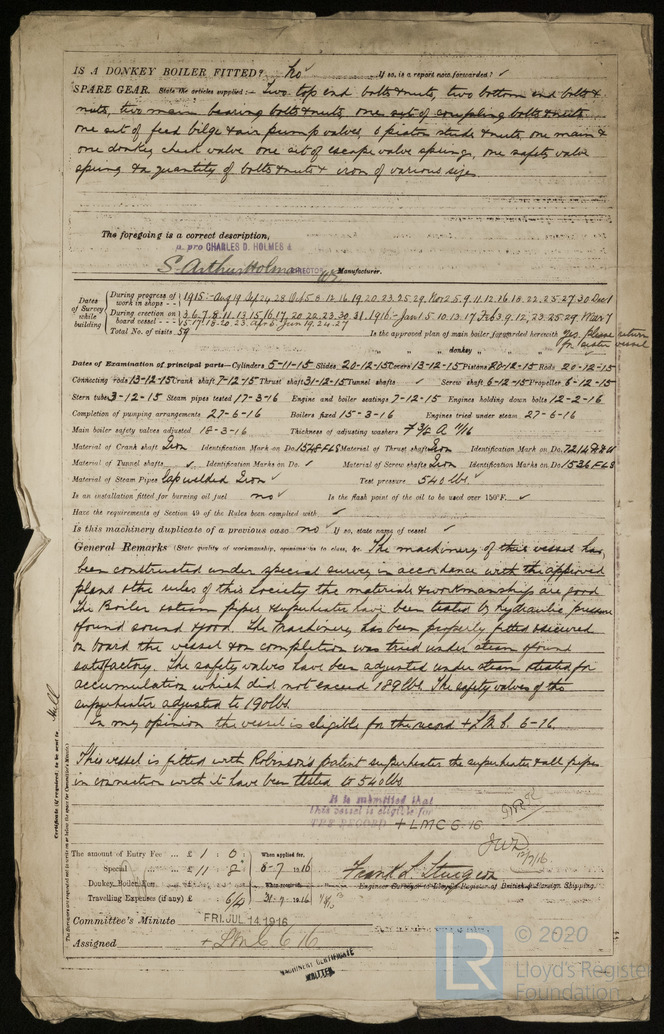 IS A DONKEY BOILER FITTED? No ✓ If so, is a report now forwarded? ✓
SPARE GEAR. State the articles supplied:— Two top end bolts & nuts, two bottom end bolts &
nuts, two main bearing bolts & nuts, one set of coupling bolts & nuts
one set of feed bilge & air pump valves, 6 piston studs & nuts one main &
one donkey check valve one set of escape valve springs, one safety valve
spring & a quantity of bolts & nuts & iron of various sizes.
The foregoing is a correct description,
p. pro CHARLES D. HOLMES &
S. Arthur Holmes DIRECTOR Manufacturer.
Dates of Survey while building
During progress of work in shops - - 1915:- Aug 19 24 28 Oct 5.8.12.16.19.20.23.25.29. Nov 2.5.9.11.12.16.18.22.25.27.30 Dec 1
During erection on board vessel - - - 3.6.7.8.11.13.15.16.17.20.22.23.30.31. 1916:- Jan 5.10.13.17 Feb 3.9.12.23.25.29 Mar 7
15.17.18.20.23. Apr 6. Jun 19.24.27
Total No. of visits 59 Is the approved plan of main boiler forwarded herewith Yes, please return
" " " donkey " " " for sister vessel
Dates of Examination of principal parts—Cylinders 5-11-15 Slides 20-12-15 Covers 13-12-15 Pistons 20-12-15 Rods 20-12-15
Connecting rods 13-12-15 Crank shaft 7-12-15 Thrust shaft 31-12-15 Tunnel shafts ✓ Screw shaft 6-12-15 Propeller 6-12-15
Stern tube 3-12-15 Steam pipes tested 17-3-16 Engine and boiler seatings 7-12-15 Engines holding down bolts 12-2-16
Completion of pumping arrangements 27-6-16 Boilers fixed 15-3-16 Engines tried under steam 27-6-16
Main boiler safety valves adjusted 18-3-16 Thickness of adjusting washers F 3/8 A 11/16
Material of Crank shaft Iron Identification Mark on Do. 1548 FLS Material of Thrust shaft Iron Identification Mark on Do. 7214
Material of Tunnel shafts ✓ Identification Marks on Do. ✓ Material of Screw shafts Iron Identification Marks on Do. 1536 FLS
Material of Steam Pipes Lap welded Iron ✓ Test pressure 540 lbs ✓
Is an installation fitted for burning oil fuel no ✓ Is the flash point of the oil to be used over 150°F. ✓
Have the requirements of Section 49 of the Rules been complied with ✓
Is this machinery duplicate of a previous case no ✓ If so, state name of vessel ✓
General Remarks (State quality of workmanship, opinions as to class, &c. The machinery of this vessel has
been constructed under special survey in accordance with the approved
plans & the rules of this Society the materials & workmanship are good
The Boiler & steam pipes & superheater have been tested by hydraulic pressure
& found sound & good. The Machinery has been properly fitted & secured
on board the vessel & on completion was tried under steam & found
satisfactory. The safety valves have been adjusted under steam & tested for
accumulation which did not exceed 189 lbs. The safety valves of the
superheater adjusted to 190 lbs.
In my opinion the vessel is eligible for the record + L.M.C. 6-16.
This vessel is fitted with Robinson's patent superheater the superheater & all pipes
in connection with it have been tested to 540 lbs
It is submitted that
this vessel is eligible for
THE RECORD + LMC 6.16
J.W.D.
12/7/16
Certificate (if required) to be sent to Hull
The amount of Entry Fee .. £ 1 : 0 : When applied for.
Special .. .. £ 11 : 2 : 8-7-1916
Donkey Boiler Fee .. .. £ : : When received.
Travelling Expenses (if any) £ : 6/4 31-7-1916
Frank L. Sturgeon
Engineer Surveyor to Lloyd's Register of British & Foreign Shipping.
Committee's Minute FRI. JUL 14. 1916
Assigned + L.M.C. 6.16
MACHINERY CERTIFICATE
WRITTEN.
LR
© 2020
Lloyd's Register
Foundation